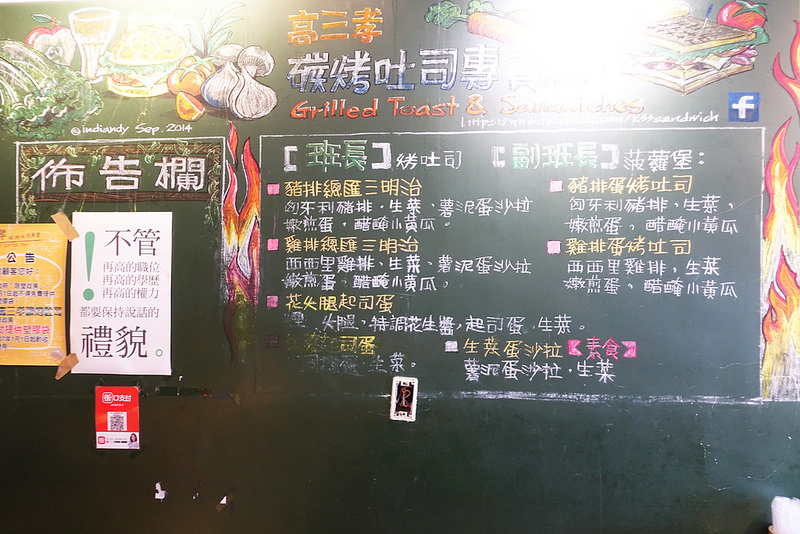 高三孝
碳烤吐司專
Grilled Toast & Sandwiches
©indiandy Sep. 2014
佈告欄
【班長】烤吐司 【副班長】菠蘿堡:
豬排總匯三明治
匈牙利豬排,生菜、薯泥蛋沙拉
嫩煎蛋、醋醃小黃瓜。
雞排總匯三明治
西西里雞排,生菜、薯泥蛋沙拉
嫩煎蛋、醋醃小黃瓜。
花火腿起司蛋
火腿、特調花生醬,起司蛋,生菜。
起司蛋
生菜。
豬排蛋烤吐司
匈牙利豬排,生菜、
嫩煎蛋、醋醃小黃瓜
雞排蛋烤吐司
西西里雞排,生菜
嫩煎蛋、醋醃小黃瓜
生菜蛋沙拉【素食】
薯泥蛋沙拉,生菜
公告
顧客您好:
!不管
再高的職位
再高的學歷
再高的權力
都要保持說話的
禮貌。
街口支付